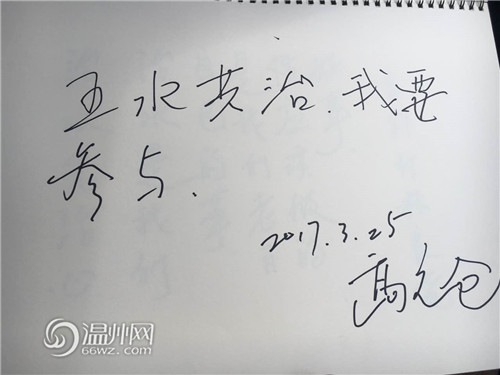 五水共治.我要
参与.
2017.3.25
温州网
66wz.com